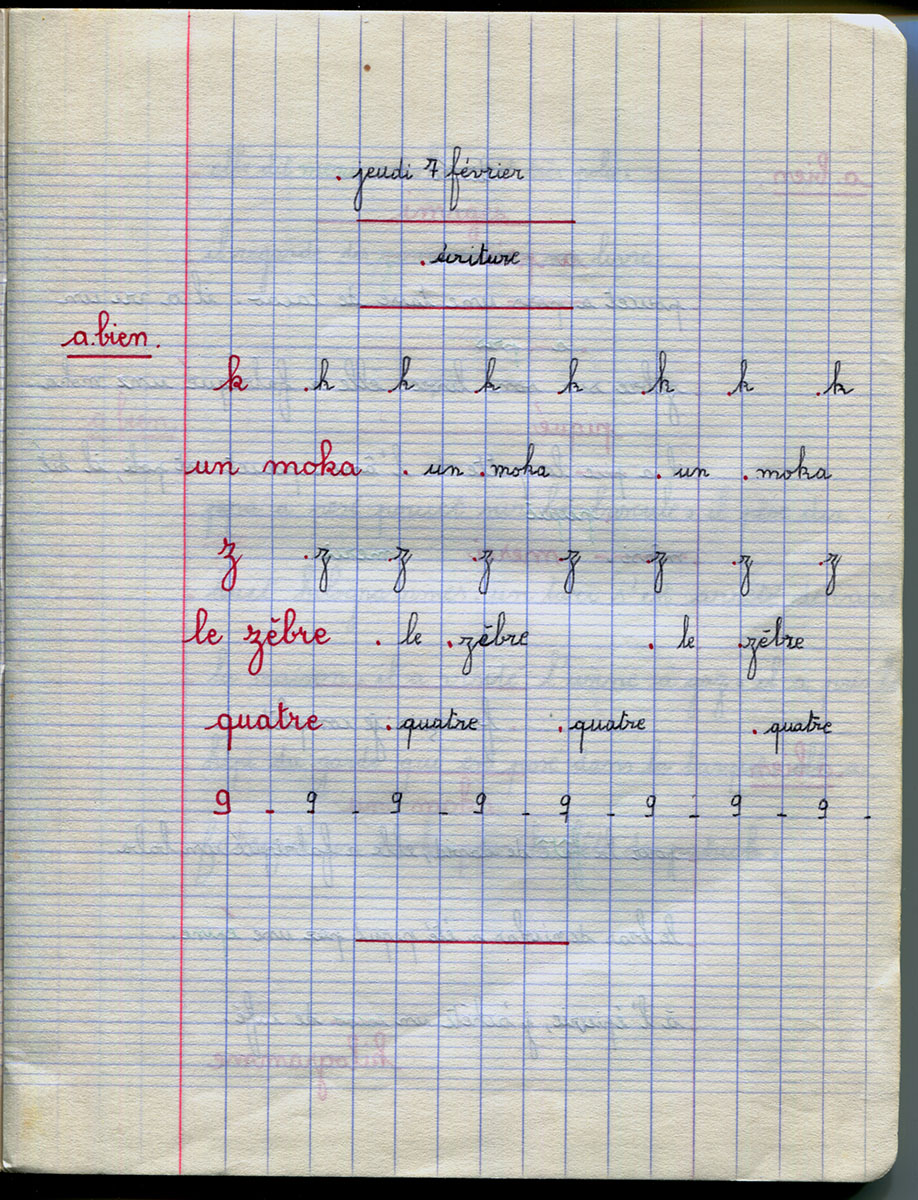 . jeudi 7 février
. écriture
a. bien.
k .k k k k .k .k .k
un moka . un . moka . un . moka
z . z z z z z z z
le zèbre . le . zèbre . le . zèbre
quatre . quatre . quatre . quatre
9 - 9 - 9 - 9 - 9 - 9 - 9 - 9 -